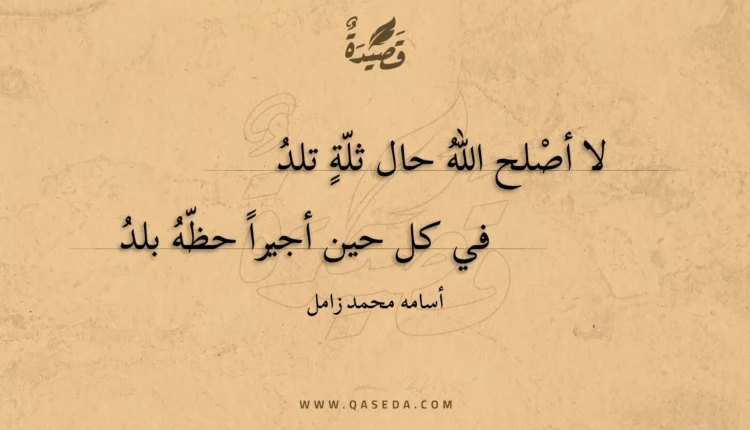 قَصِيْدَةٌ
لا أصْلح اللهُ حال ثلّةٍ تلدُ
في كل حين أجيراً حظّهُ بلدُ
أسامه محمد زامل
WWW.QASEDA.COM